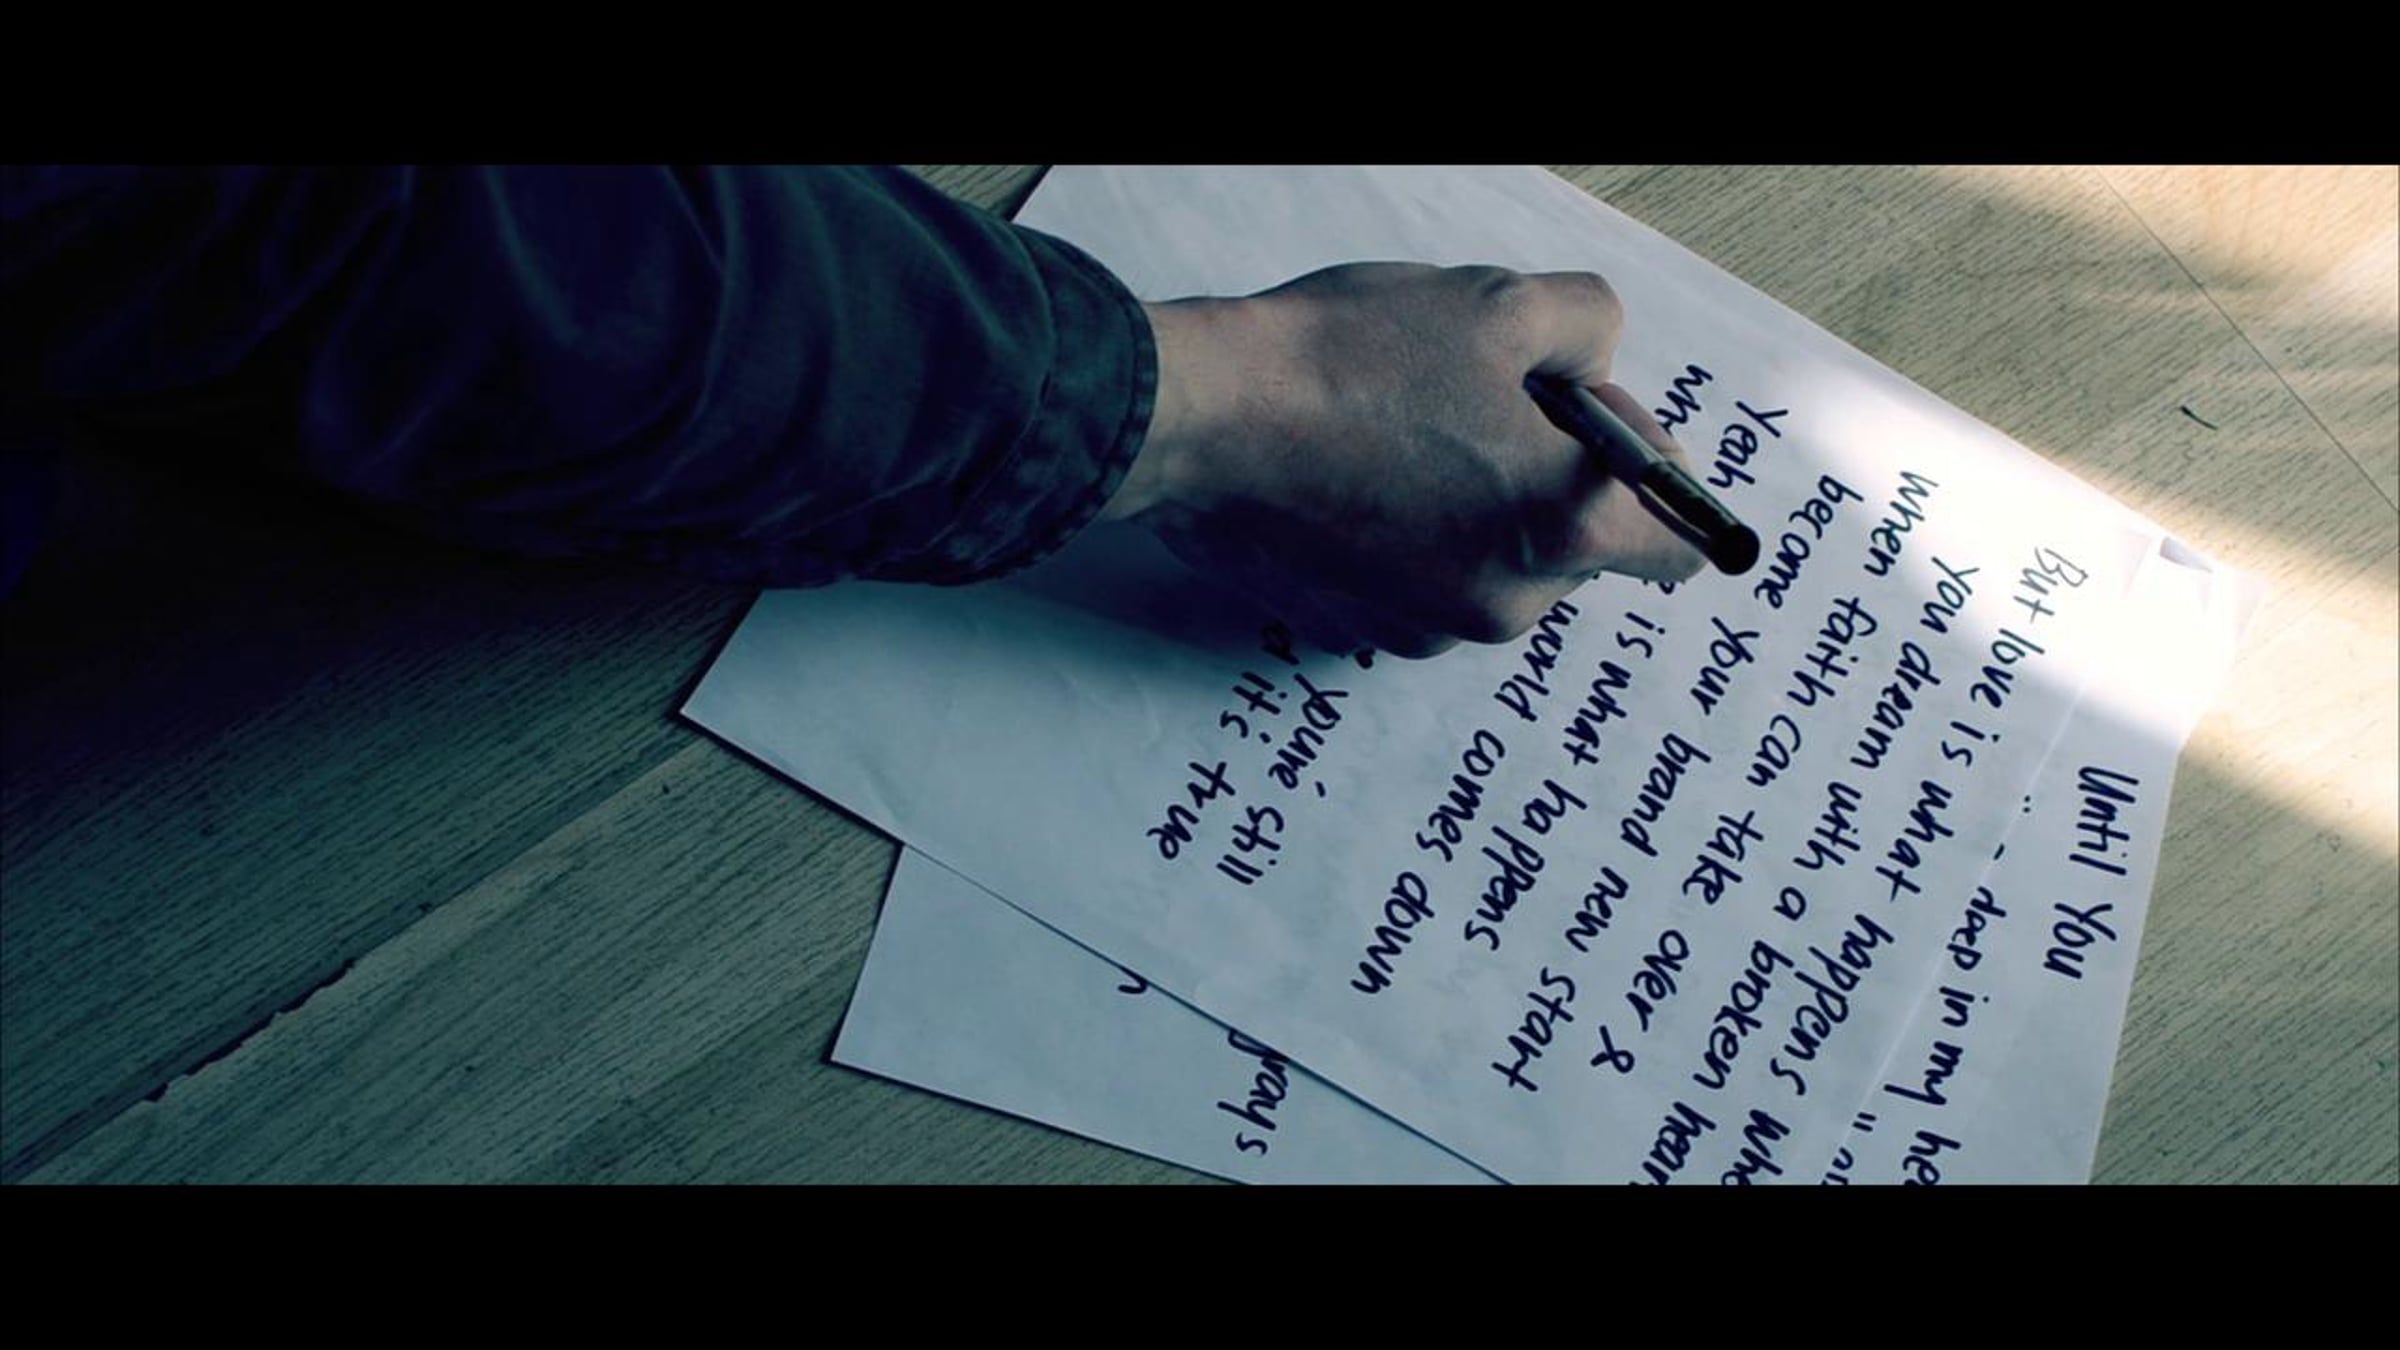 Until You
deep in my
But love is what happens
you dream with a broken
when faith can take over &
become your brand new start
Yeah is what happens
world comes down
you're still
it's true